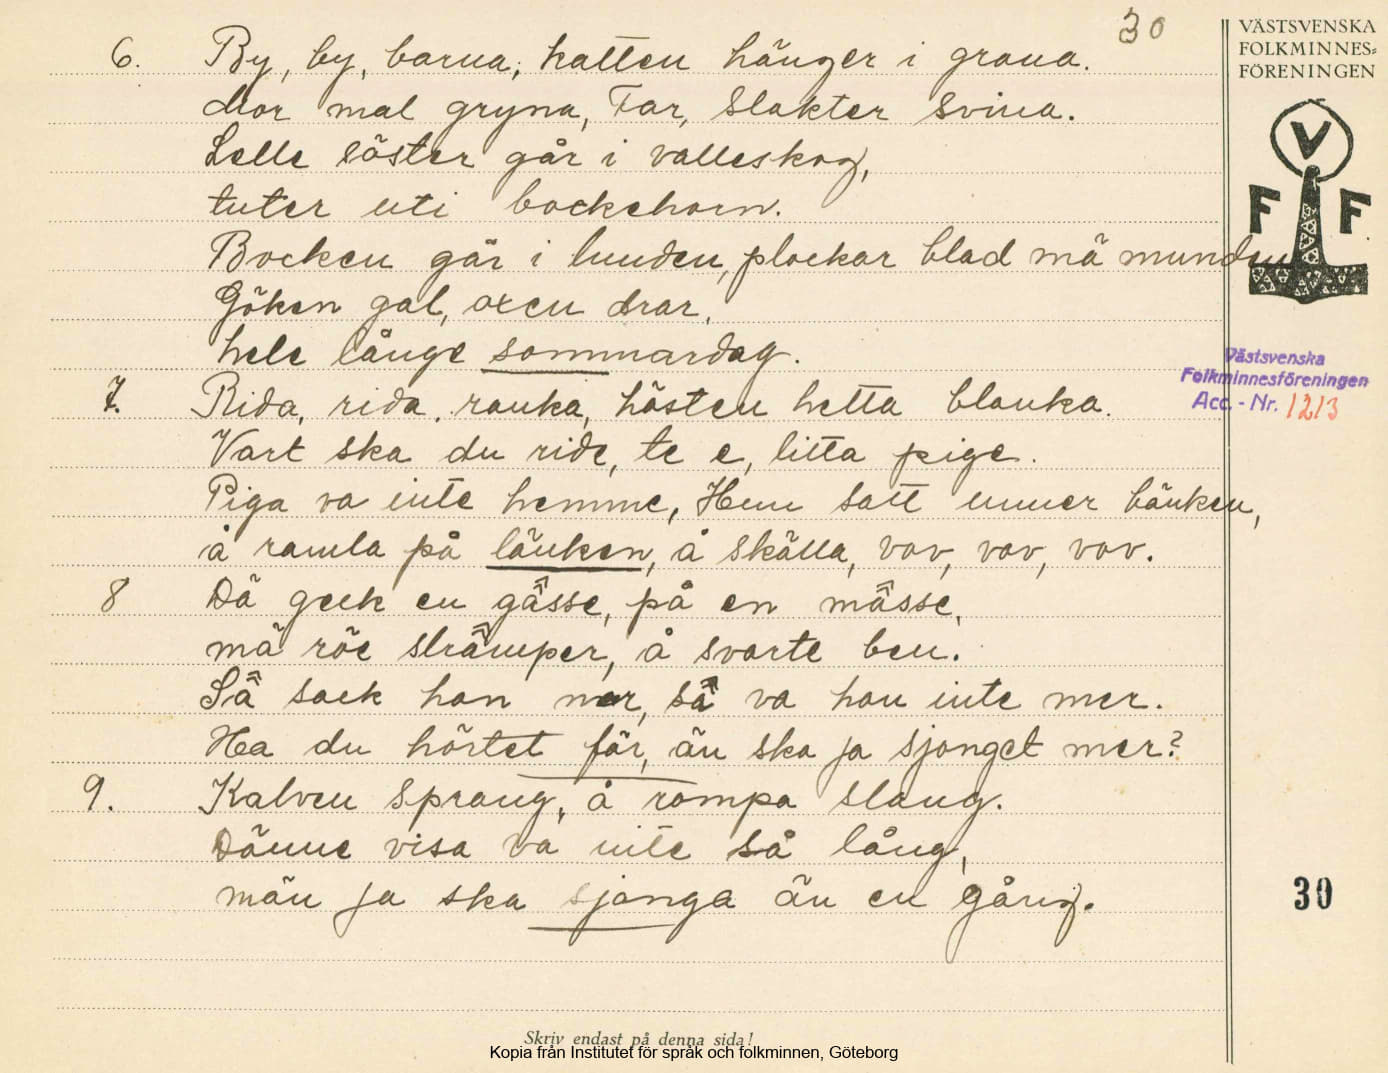 30
VÄSTSVENSKA
FOLKMINNES-
FÖRENINGEN
V
F F
Västsvenska
Folkminnesföreningen
Acc. - Nr. 1213
6. By, by, barna, katten hänger i grana.
Mor mal gryna, Far, slakter svina.
Lelle söster går i valleskog,
tuter uti bockehorn.
Bocken går i lunden, plockar blad mä munden
Göken gal, oxen drar,
hele långe sommardag.
7. Rida, rida, ranka, hästen hetta blanka.
Vart ska du ride, te e, litta pige.
Piga va inte hemme, Hun satt unner bänken,
å ramla på länken, å skälla, vov, vov, vov.
8 Dä geck en gåsse, på en måsse,
mä röe strämper, å svarte ben.
Så sack han ner, så va han inte mer.
Ha du hörtet för, än ska ja sjonget mer?
9. Kalven sprang, å rompa slang.
Dänne visa va inte så lång,
män ja ska sjonga än en gång.
30
Skriv endast på denna sida!
Kopia från Institutet för språk och folkminnen, Göteborg